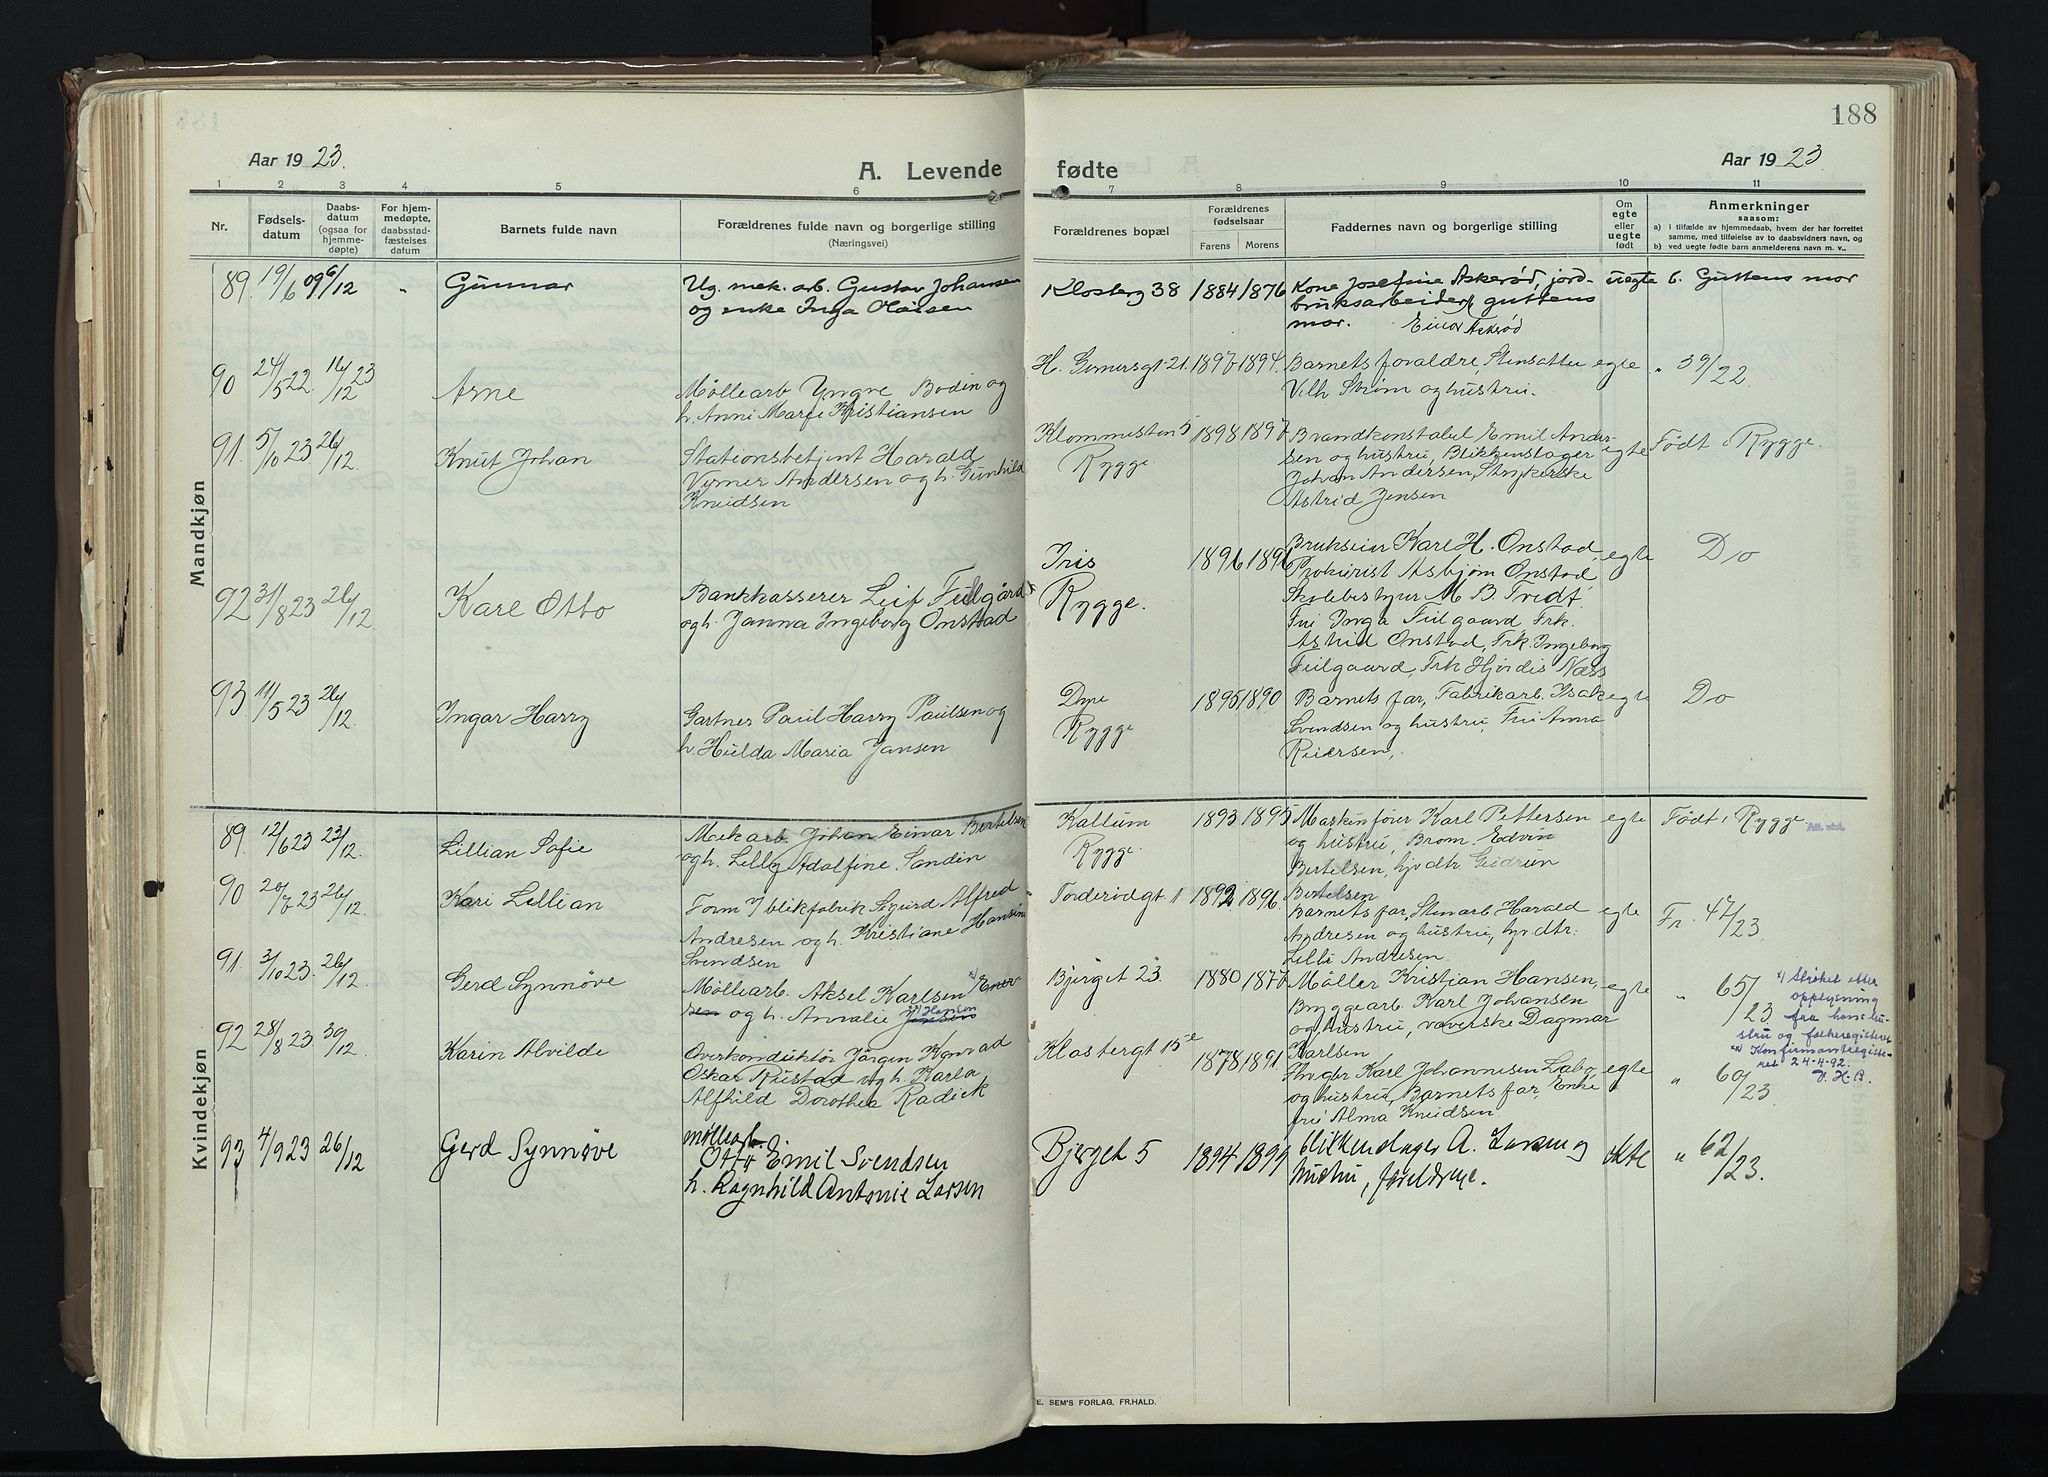 188
Aar 19 23.
A. Levende
fødte
Aar 19 23
1 2 3 4 5 6 7 8 9 10 11
Nr.
Fødsels-
datum
Daabs-
datum
(ogsaa for
hjemme-
døpte)
For hjem-
medøpte,
daabsstad-
fæstelses
datum
Barnets fulde navn
Forældrenes fulde navn og borgerlige stilling
(Næringsvei)
Forældrenes bopæl
Forældrenes
fødselsaar
Farens
Morens
Faddernes navn og borgerlige stilling
Om
egte
eller
uegte
født
Anmerkninger
saasom:
a) i tilfælde av hjemmedaab, hvem der har forrettet
samme, med tilføielse av to daabsvidners navn, og
b) ved uegte fødte barn anmelderens navn m. v..
Mandkjøn
89 19/6 09 6/12 " Gunnar
Ug. mek. arb. Gustav Johansen
og enke Inga Olaisen
Klosterg 38 1884 1876
Kone Josefine Askerød, jord-
bruksarbeider guttens
mor. Einar Askerød
uegte b. Guttens mor
90 24/5 22. 16/12 23 Arne
Møllearb Yngve Bodin og
h. Anni Marie Kristiansen
H. Gerners gt. 21. 1897 1894.
Barnets forældre, Stensætter
Vilh Strøm og hustru.
egte " 39/22.
91. 5/10 23. 26/12. Knut Johan
Stationsbetjent Harald
Verner Andersen og h. Gunhild
Knudsen
Klommesten 5
Rygge.
1898 1897
Brandkonstabel Emil Ander-
sen og hustru, Blikkenslager
Johan Andersen, Strykerske
Astrid Jensen
egte Født i Rygge.
92 31/8 23 26/12. Karl Otto
Bankkasserer Leif Fulgård
og h. Janna Ingeborg Onstad
Iris
Rygge.
1896 1896
Brukseier Karl H. Onstad,
Prokurist Asbjørn Onstad
Skolebestyrer M. B. Tvedt.
Fru Inga Fuilgaard Frk.
Astrid Onstad, Frk. Ingeborg
Fuilgaard, Frk Hjørdis Næss
egte Do
93. 11/5 23 26/12. Ingar Harry
Gartner Paul Harry Paulsen og
h. Hulda Maria Jansen
Dyre
Rygge
1895 1890
Barnets far, Fabrikarb. Isak
Svendsen og hustru, Fru Anna
Reiersen,
egte Do
Kvindekjøn
89. 12/6 23 23/12. Lillian Sofie
Mek arb. Johan Einar Bertelsen
og h. Lilly Adolfine Sandin
Kallum
Rygge.
1893 1895
Maskinfører Karl Pettersen
og hustru, Brom. Edvin
Bertelsen, hjv dtr. Gudrun
Bertelsen
egte Født i Rygge
90 20/7 23 26/12. Kari Lillian
Form I blikfabrik Sigurd Alfred
Andresen og h. Kristiane Hansine
Svendsen
Torderødgt 1 1892 1896
Barnets far, Stenarb Harald
Andresen og hustru, hjv dtr.
Lilli Andresen.
egte Fr. 47/23.
91. 3/10 23. 26/12. Gerd Synnøve
Møllearb. Aksel Karlsen
og h. Amalie Jensen Hansen
Bjerget 23. 1880 1877
Møller Kristian Hansen,
Bryggearb Karl Johansen
og hustru, væverske Dagmar
Karlsen
egte " 65/23
x) Strøket etter
opplysning
fra hans hu-
stru og folkeregisteret
xx) Konfirmantregiste-
ret 24-4-92.
V. H. B.
92 28/8 23. 30/12. Karin Alvilde
Overkonduktør Jørgen Konrad
Oskar Rustad og h. Karla
Alfhild Dorothea Radick
Klostergt 15 e 1878 1891.
Karl Johannesen Labo
og hustru, Barnets far, Enke
fru Alma Knudsen.
egte " 60/23
93 4/9 23 26/12 Gerd Synnøve
møllearb.
Otto Emil Svendsen
h. Ragnhild Antonie Larsen
Bjerget 5 1894 1899
blikkenslager A. Larsen og
hustru, foreldrene.
ekte " 62/23.
E. SEM'S FORLAG, FR.HALD.